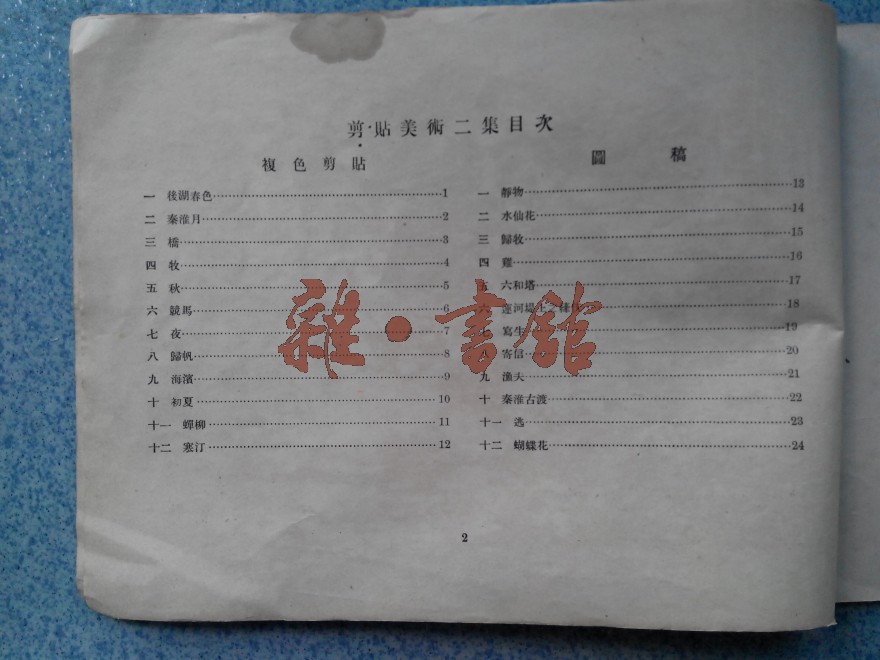 剪貼美術二集目次
複色剪貼
一 後湖春色 1
二 秦淮月 2
三 橋 3
四 牧 4
五 秋 5
六 競馬 6
七 夜 7
八 歸帆 8
九 海濱 9
十 初夏 10
十一 蟬柳 11
十二 寒汀 12
圖稿
一 靜物 13
二 水仙花 14
三 歸牧 15
四 雞 16
五 六和塔 17
六 運河堤上 18
七 寫生 19
八 寄信 20
九 漁夫 21
十 秦淮古渡 22
十一 逃 23
十二 蝴蝶花 24
2
雜·書館